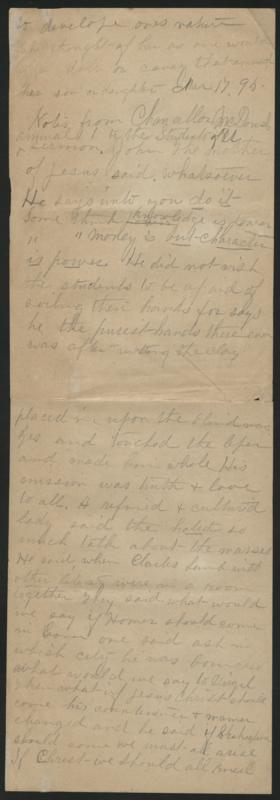 to develope ones nature
thought of her as one would
a doll or
her son or daughter Mar 17, 95.
Notes from Chancellor McDowel
annual to the Students of U
Sermon. John The mother
of Jesus said, Whatsoever
He says unto you do it
Some think knowledge is power
" " money is but character
is power. He did not wish
the students to be afraid of
soiling their hands for says
he the purest hands there ever
was after wetting the clay
placed it upon the blind mans
eyes and touched the leper
and made him whole His
mission was truth & love
to all. A refined & cultured
lady said she hated so
much talk about the masses
He said when Charles Lamb with
other literary were in a room
together they said what would
we say if Homer should come
in one said ask in
which city he was born &c
what would we say to Virgil
then what if Jesus Christ should
come his countenance & manner
changed and he said if Shakespere
should come we must all arise
If Christ we should all kneel